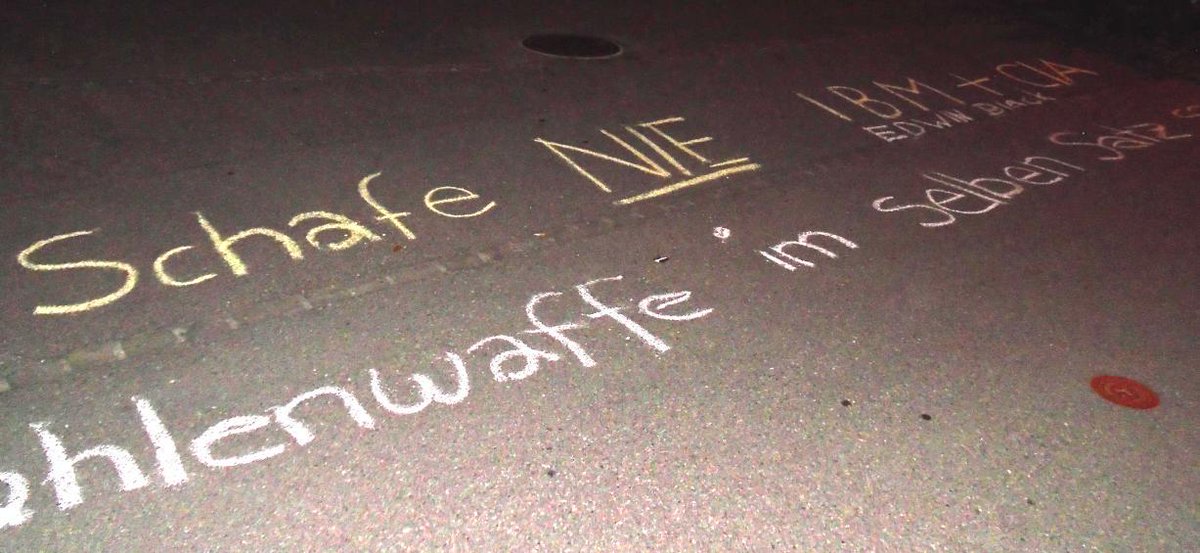 Schafe NIE IBM + CIA
EDWIN BLACK
ahlenwaffe im Selben Satz